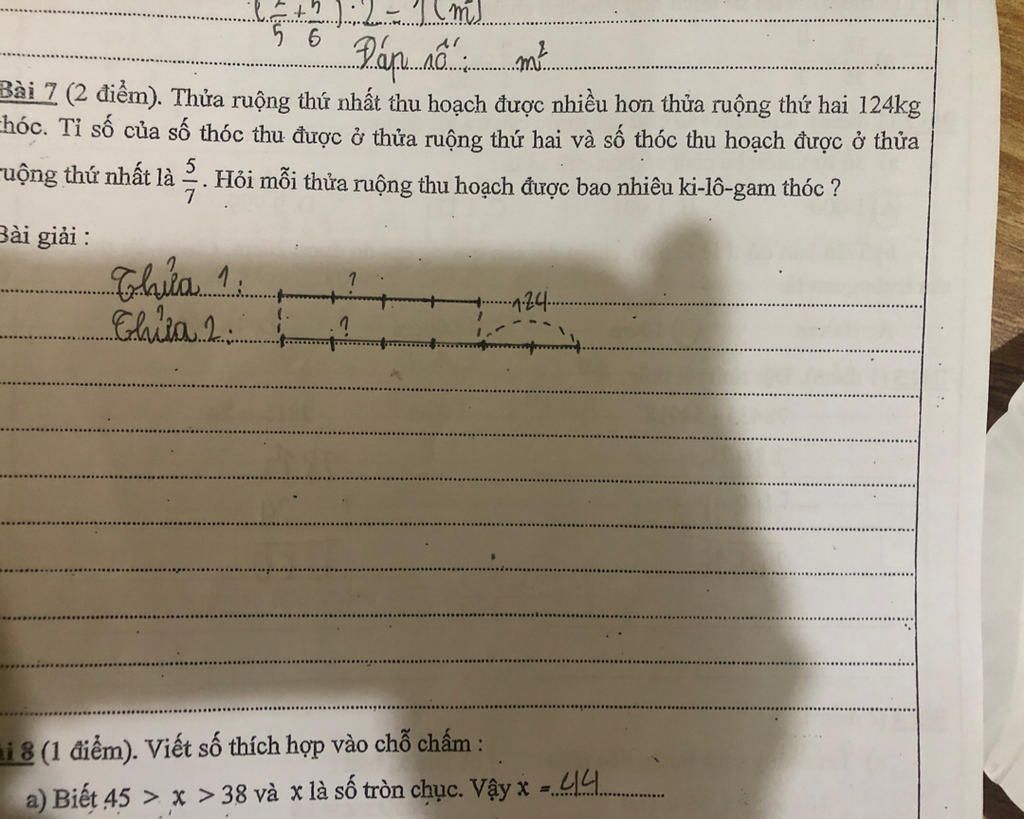 5 6 ) : 2 = 1 (m)
Đáp số: m²
Bài 7 (2 điểm). Thửa ruộng thứ nhất thu hoạch được nhiều hơn thửa ruộng thứ hai 124kg
thóc. Tỉ số của số thóc thu được ở thửa ruộng thứ hai và số thóc thu hoạch được ở thửa
ruộng thứ nhất là 5/7. Hỏi mỗi thửa ruộng thu hoạch được bao nhiêu ki-lô-gam thóc ?
Bài giải :
Thửa 1: ? 124
Thửa 2: ?
8 (1 điểm). Viết số thích hợp vào chỗ chấm :
a) Biết 45 > x > 38 và x là số tròn chục. Vậy x = 44